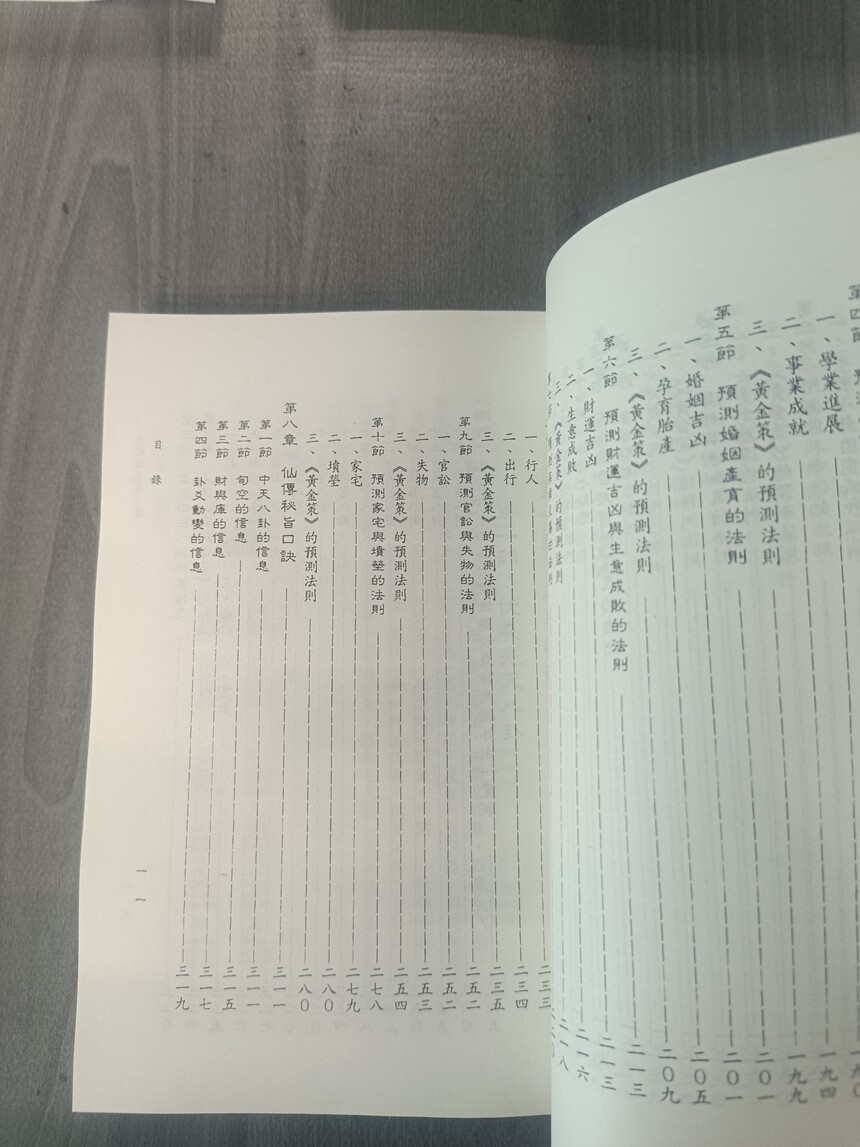 第四節
一九〇
一、學業進展 一九四
二、事業成就 一九九
三、《黃金策》的預測法則 二〇一
第五節 預測婚姻產育的法則 二〇一
一、婚姻吉凶 二〇五
二、孕育胎產 二〇九
三、《黃金策》的預測法則 二一三
第六節 預測財運吉凶與生意成敗的法則 二一三
一、財運吉凶 二一六
二、生意成敗 二一八
三、《黃金策》的預測法則
一、行人 二三三
二、出行 二三四
三、《黃金策》的預測法則 二三五
第九節 預測官訟與失物的法則 二五二
一、官訟 二五二
二、失物 二五三
三、《黃金策》的預測法則 二五四
第十節 預測家宅與墳塋的法則 二七八
一、家宅 二七九
二、墳塋 二八〇
三、《黃金策》的預測法則 二八〇
第八章 仙傳秘旨口訣 三一一
第一節 中天八卦的信息 三一一
第二節 旬空的信息 三一五
第三節 財與庫的信息 三一七
第四節 卦爻動變的信息 三一九
目錄
一一